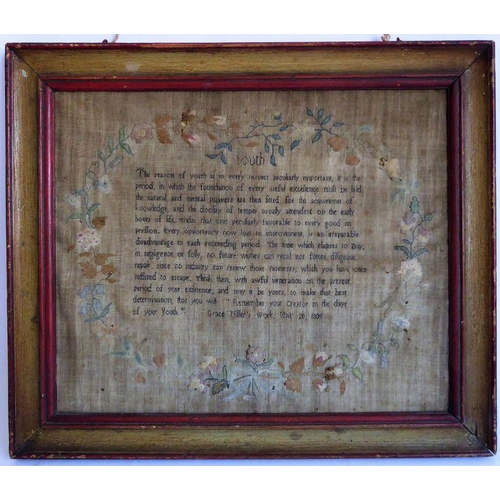 Youth
The season of youth is in every respect peculiarly important, it is the
period, in which the foundation of every useful excellence must be laid,
the natural and mental powers are then fitted, for the acquirement of
knowledge, and the docility of temper usually attendent on the early
hours of life, render that time peculiarly favorable to every good im
pression. Every opportunity now lost to improvement, is an irreparable
disadvantage to each succeeding period. The time which elapses to Day,
in negligence, or folly, no future wishes can recal nor future diligence
repair since no industry can renew those moments, which you have once
suffered to escape. Think, then, with awful veneration on the present
period of your existence, and may it be yours, to make that best
determination, that you will "Remember your Creator in the days
of your Youth". Grace Miller's Work, May 20,